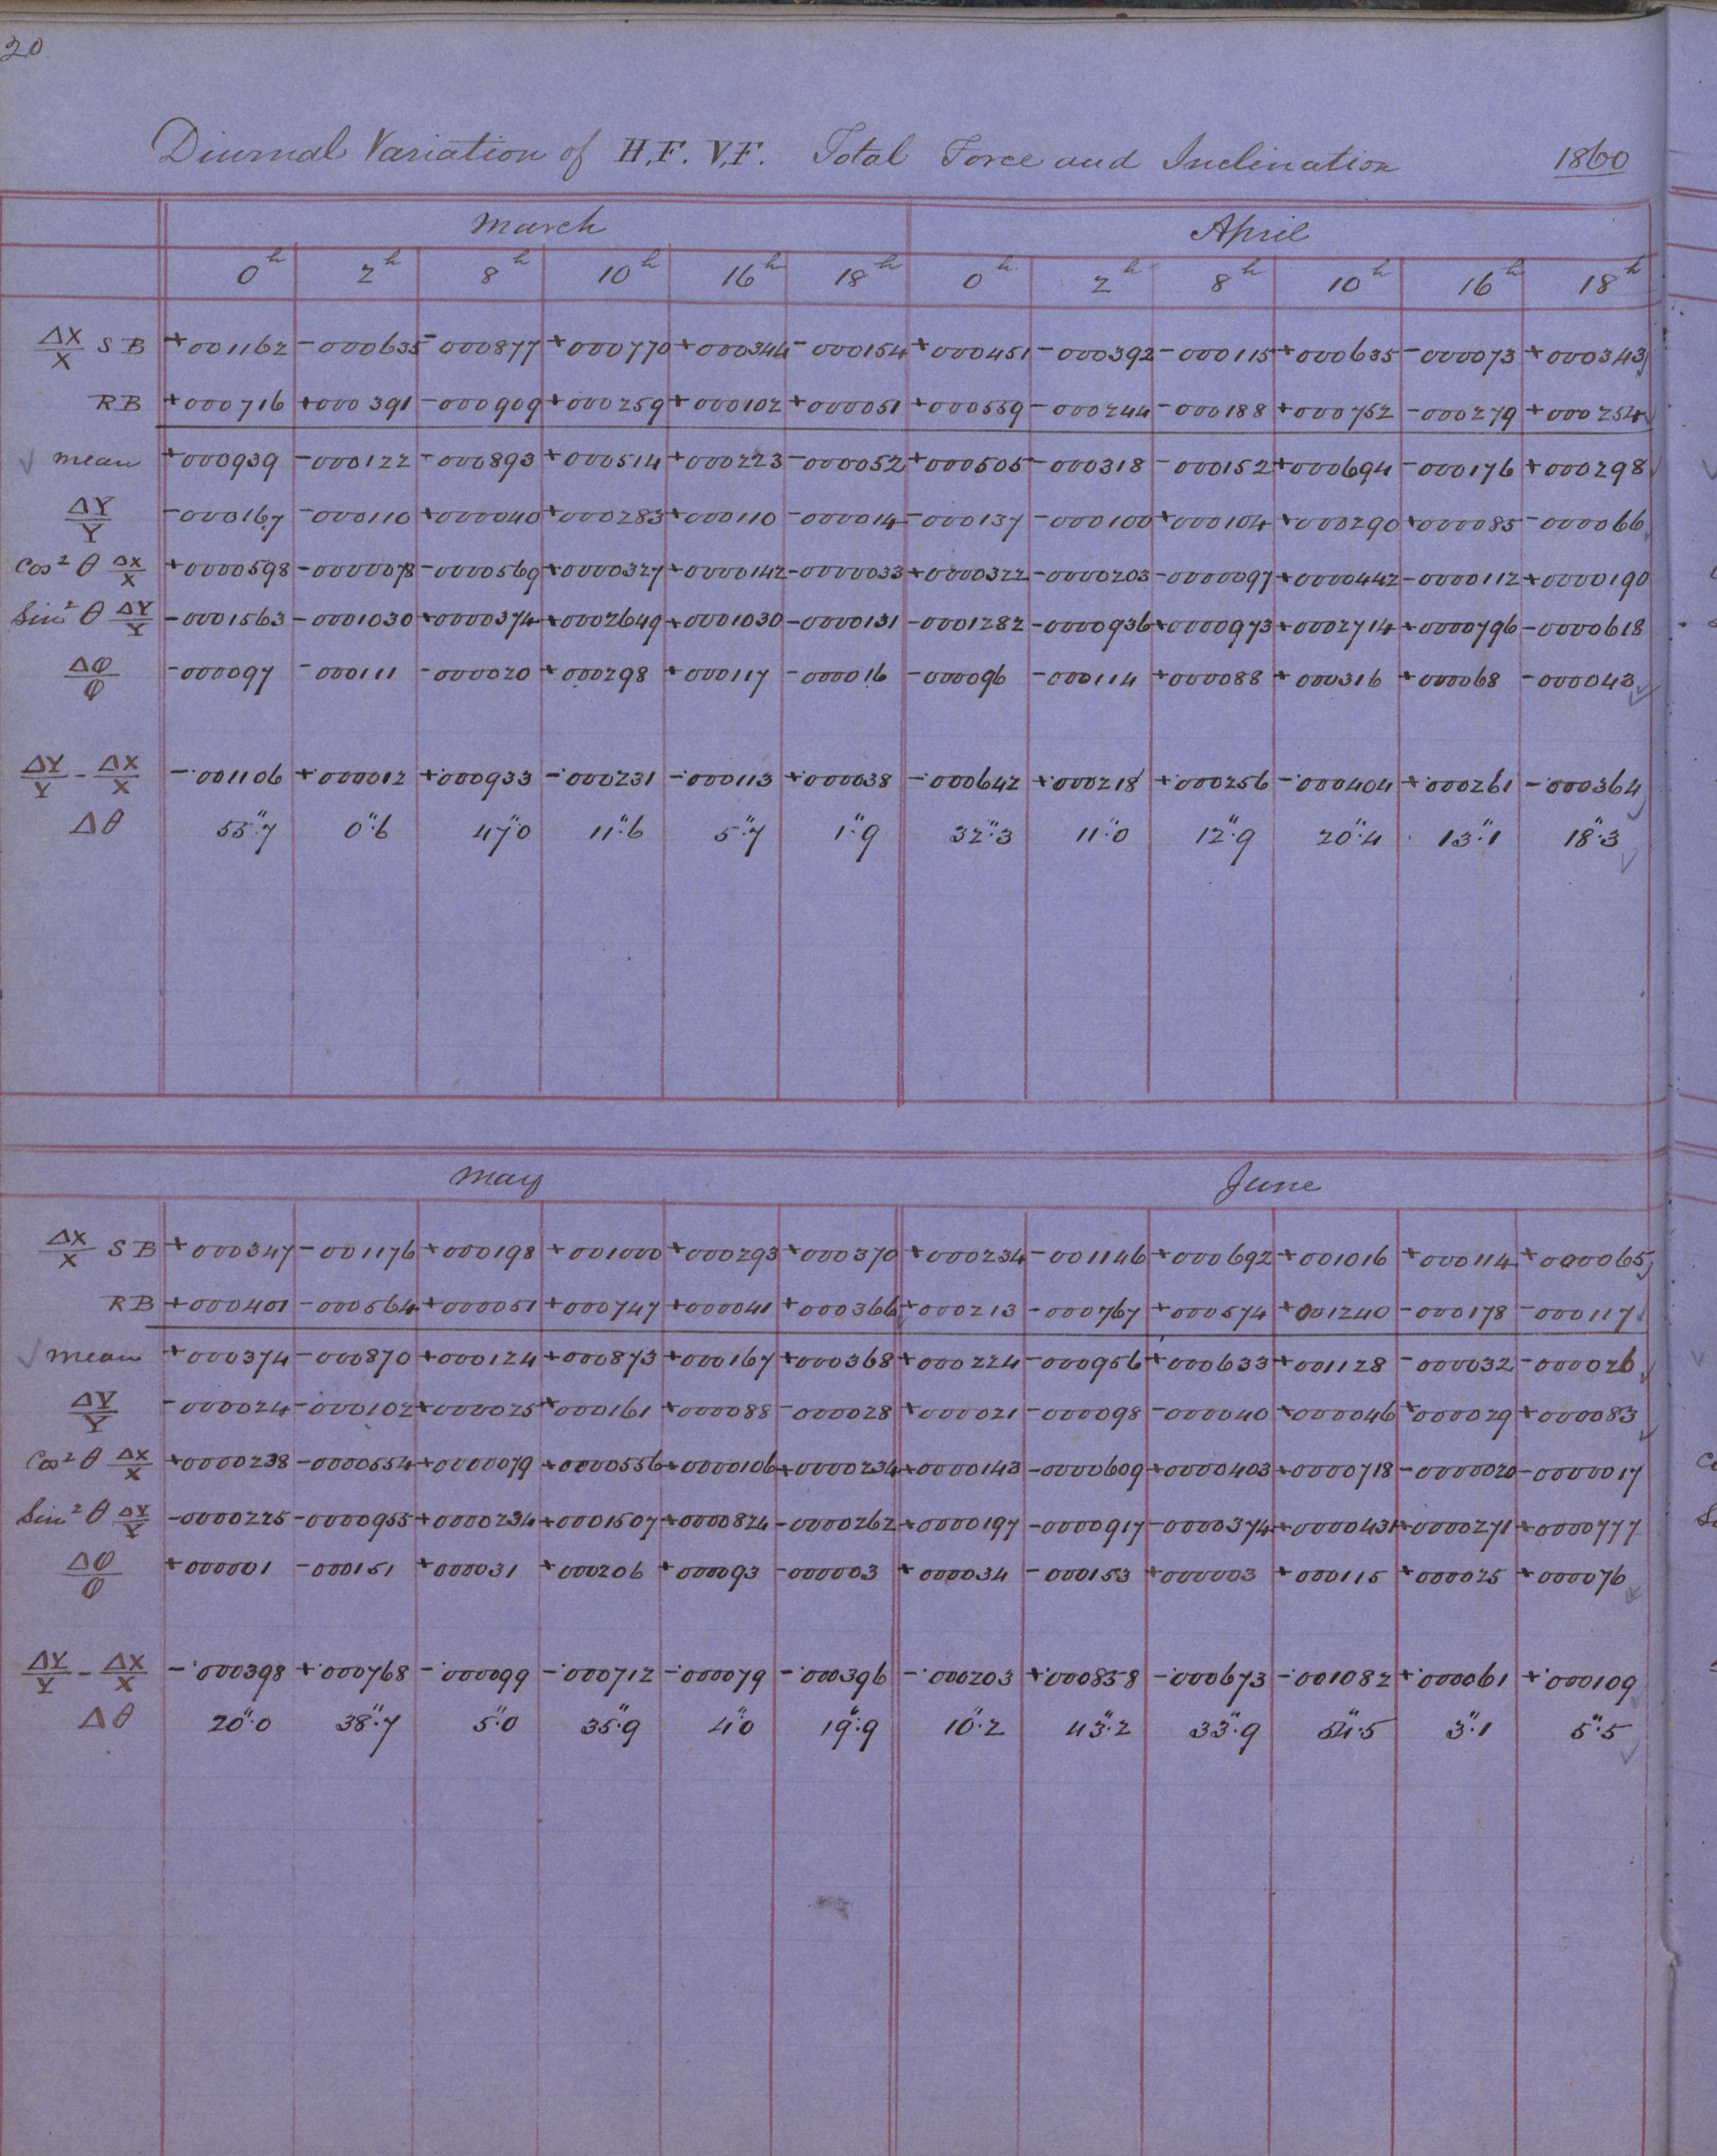 20
Diurnal Variation of H.F. V.F. Total Force and Inclination 1860
March April
0h 2h 8h 10h 16h 18h 0h 2h 8h 10h 16h 18h
ΔX/X SB +001162 -000635 -000877 +000770 +000344 -000154 +000451 -000392 -000115 +000635 -000073 +000343
RB +000716 +000391 -000909 +000259 +000102 +000051 +000559 -000244 -000188 +000752 -000279 +000254
mean +000939 -000122 -000893 +000514 +000223 -000052 +000505 -000318 -000152 +000694 -000176 +000298
ΔY/Y -000167 -000110 +000040 +000283 +000110 -000014 -000137 -000100 +000104 +000290 +000085 -000066
Cos² θ ΔX/X +0000598 -0000078 -0000569 +0000327 +0000142 -0000033 +0000322 -0000203 -0000097 +0000442 -0000112 +0000190
Sin² θ ΔY/Y -0001563 -0001030 +0000374 +0002649 +0001030 -0000131 -0001282 -0000936 +0000973 +0002714 +0000796 -0000618
Δφ/φ -000097 -000111 -000020 +000298 +000117 -000016 -000096 -000114 +000088 +000316 +000068 -000043
ΔY/Y - ΔX/X -.001106 +.000012 +.000933 -.000231 -.000113 +.000038 -.000642 +.000218 +.000256 -.000404 +.000261 -.000364
Δθ 55".7 0".6 47".0 11".6 5".7 1".9 32".3 11".0 12".9 20".4 13".1 18".3
May June
ΔX/X SB +000347 -001176 +000198 +001000 +000293 +000370 +000234 -001146 +000692 +001016 +000114 +000065
RB +000401 -000564 +000051 +000747 +000041 +000366 +000213 -000767 +000574 +001240 -000178 -000117
mean +000374 -000870 +000124 +000873 +000167 +000368 +000224 -000956 +000633 +001128 -000032 -000026
ΔY/Y -000024 -000102 +000025 +000161 +000088 -000028 +000021 -000098 -000040 +000046 +000029 +000083
Cos² θ ΔX/X +0000238 -0000554 +0000079 +0000556 +0000106 +0000234 +0000143 -0000609 +0000403 +0000718 -0000020 -0000017
Sin² θ ΔY/Y -0000225 -0000955 +0000234 +0001507 +0000824 -0000262 +0000197 -0000917 -0000374 +0000431 +0000271 +0000777
Δφ/φ +000001 -000151 +000031 +000206 +000093 -000003 +000034 -000153 +000003 +000115 +000025 +000076
ΔY/Y - ΔX/X -.000398 +.000768 -.000099 -.000712 -.000079 -.000396 -.000203 +.000858 -.000673 -.001082 +.000061 +.000109
Δθ 20".0 38".7 5".0 35".9 4".0 19".9 10".2 43".2 33".9 54".5 3".1 5".5